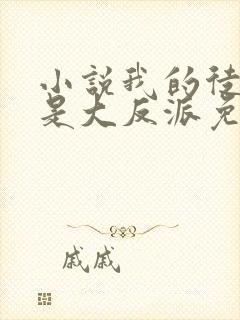 小説我的徒
是大反派免
戚戚